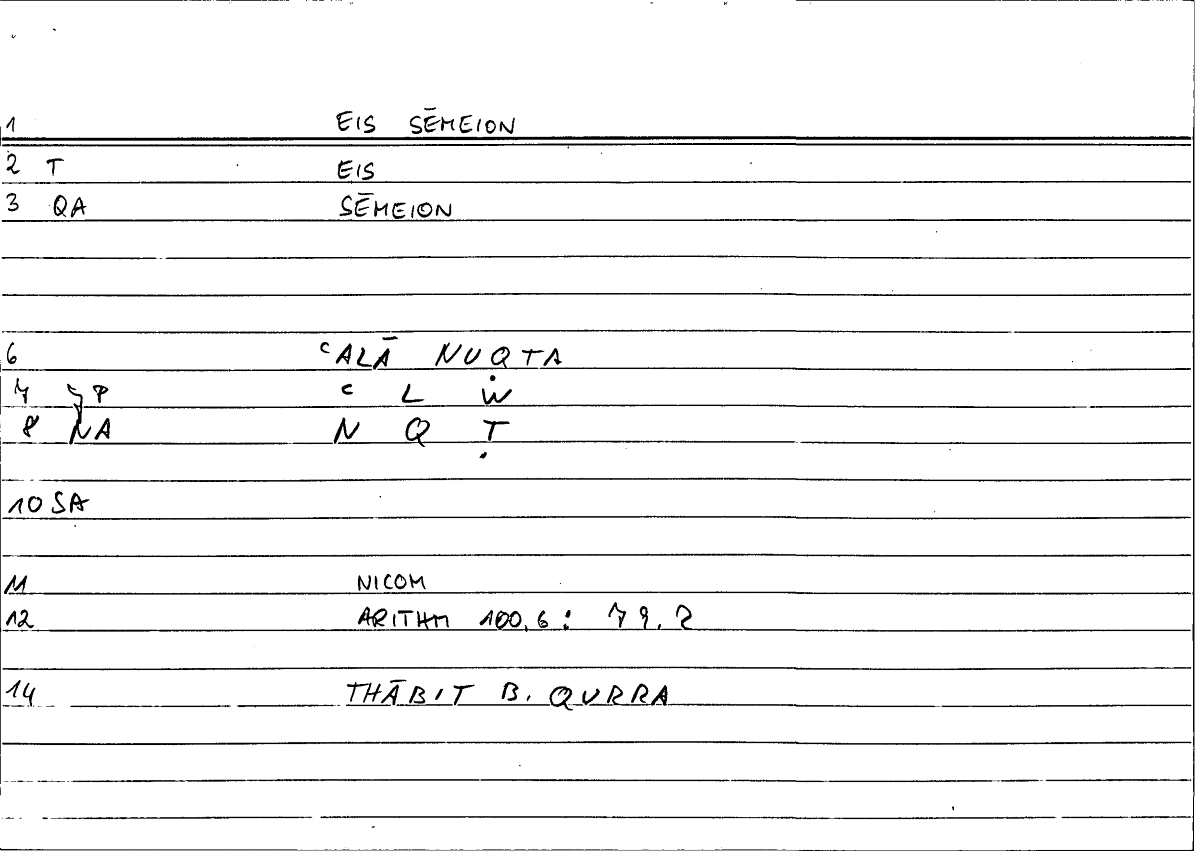 1 EIS SĒMEION
2 T EIS
3 QA SĒMEION
6 ʿALĀ NUQTA
7 ʿ L Ẇ
8 NA N Q Ṭ
10 SA
11 NICOM
12 ARITHM 100,6: 79.2
14 THĀBIT B. QURRA